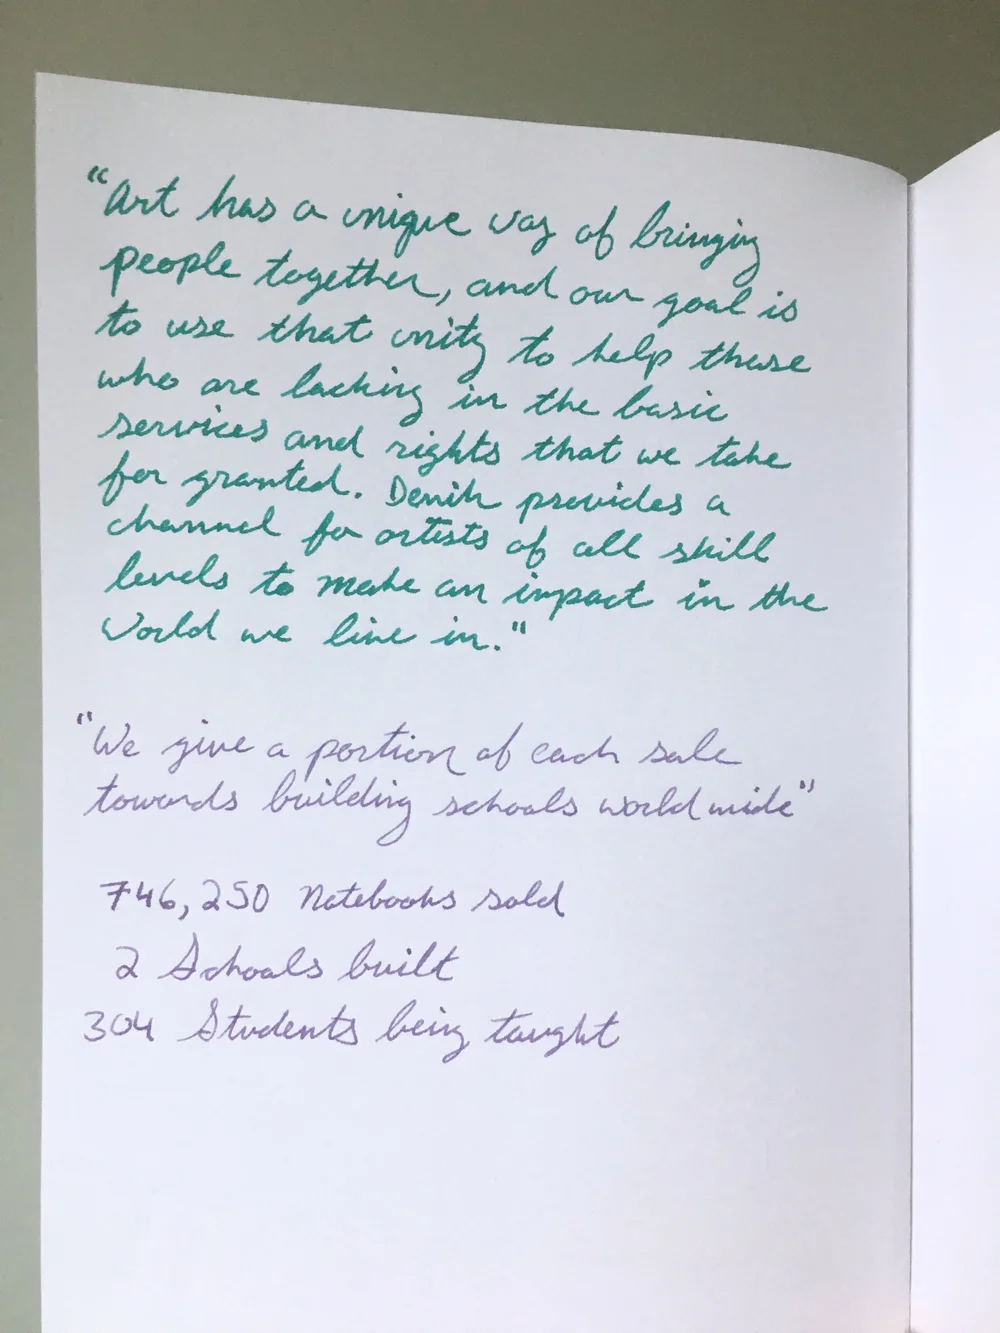 "Art has a unique way of bringing
people together, and our goal is
to use that unity to help those
who are lacking in the basic
services and rights that we take
for granted. Denik provides a
channel for artists of all skill
levels to make an impact in the
world we live in."
"We give a portion of each sale
towards building schools worldwide"
746,250 Notebooks sold
2 Schools built
304 Students being taught